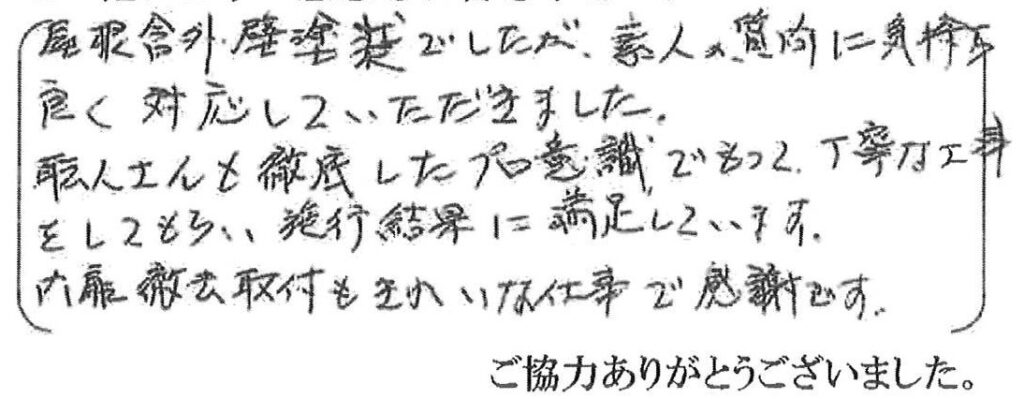 屋根含外壁塗装でしたが、素人の質問に気持ち
良く対応していただきました。
職人さんも徹底したプロ意識でもって、丁寧な工事
をしてもらい、施行結果に満足しています。
内扉撤去取付もきれいな仕事で感謝です。
ご協力ありがとうございました。